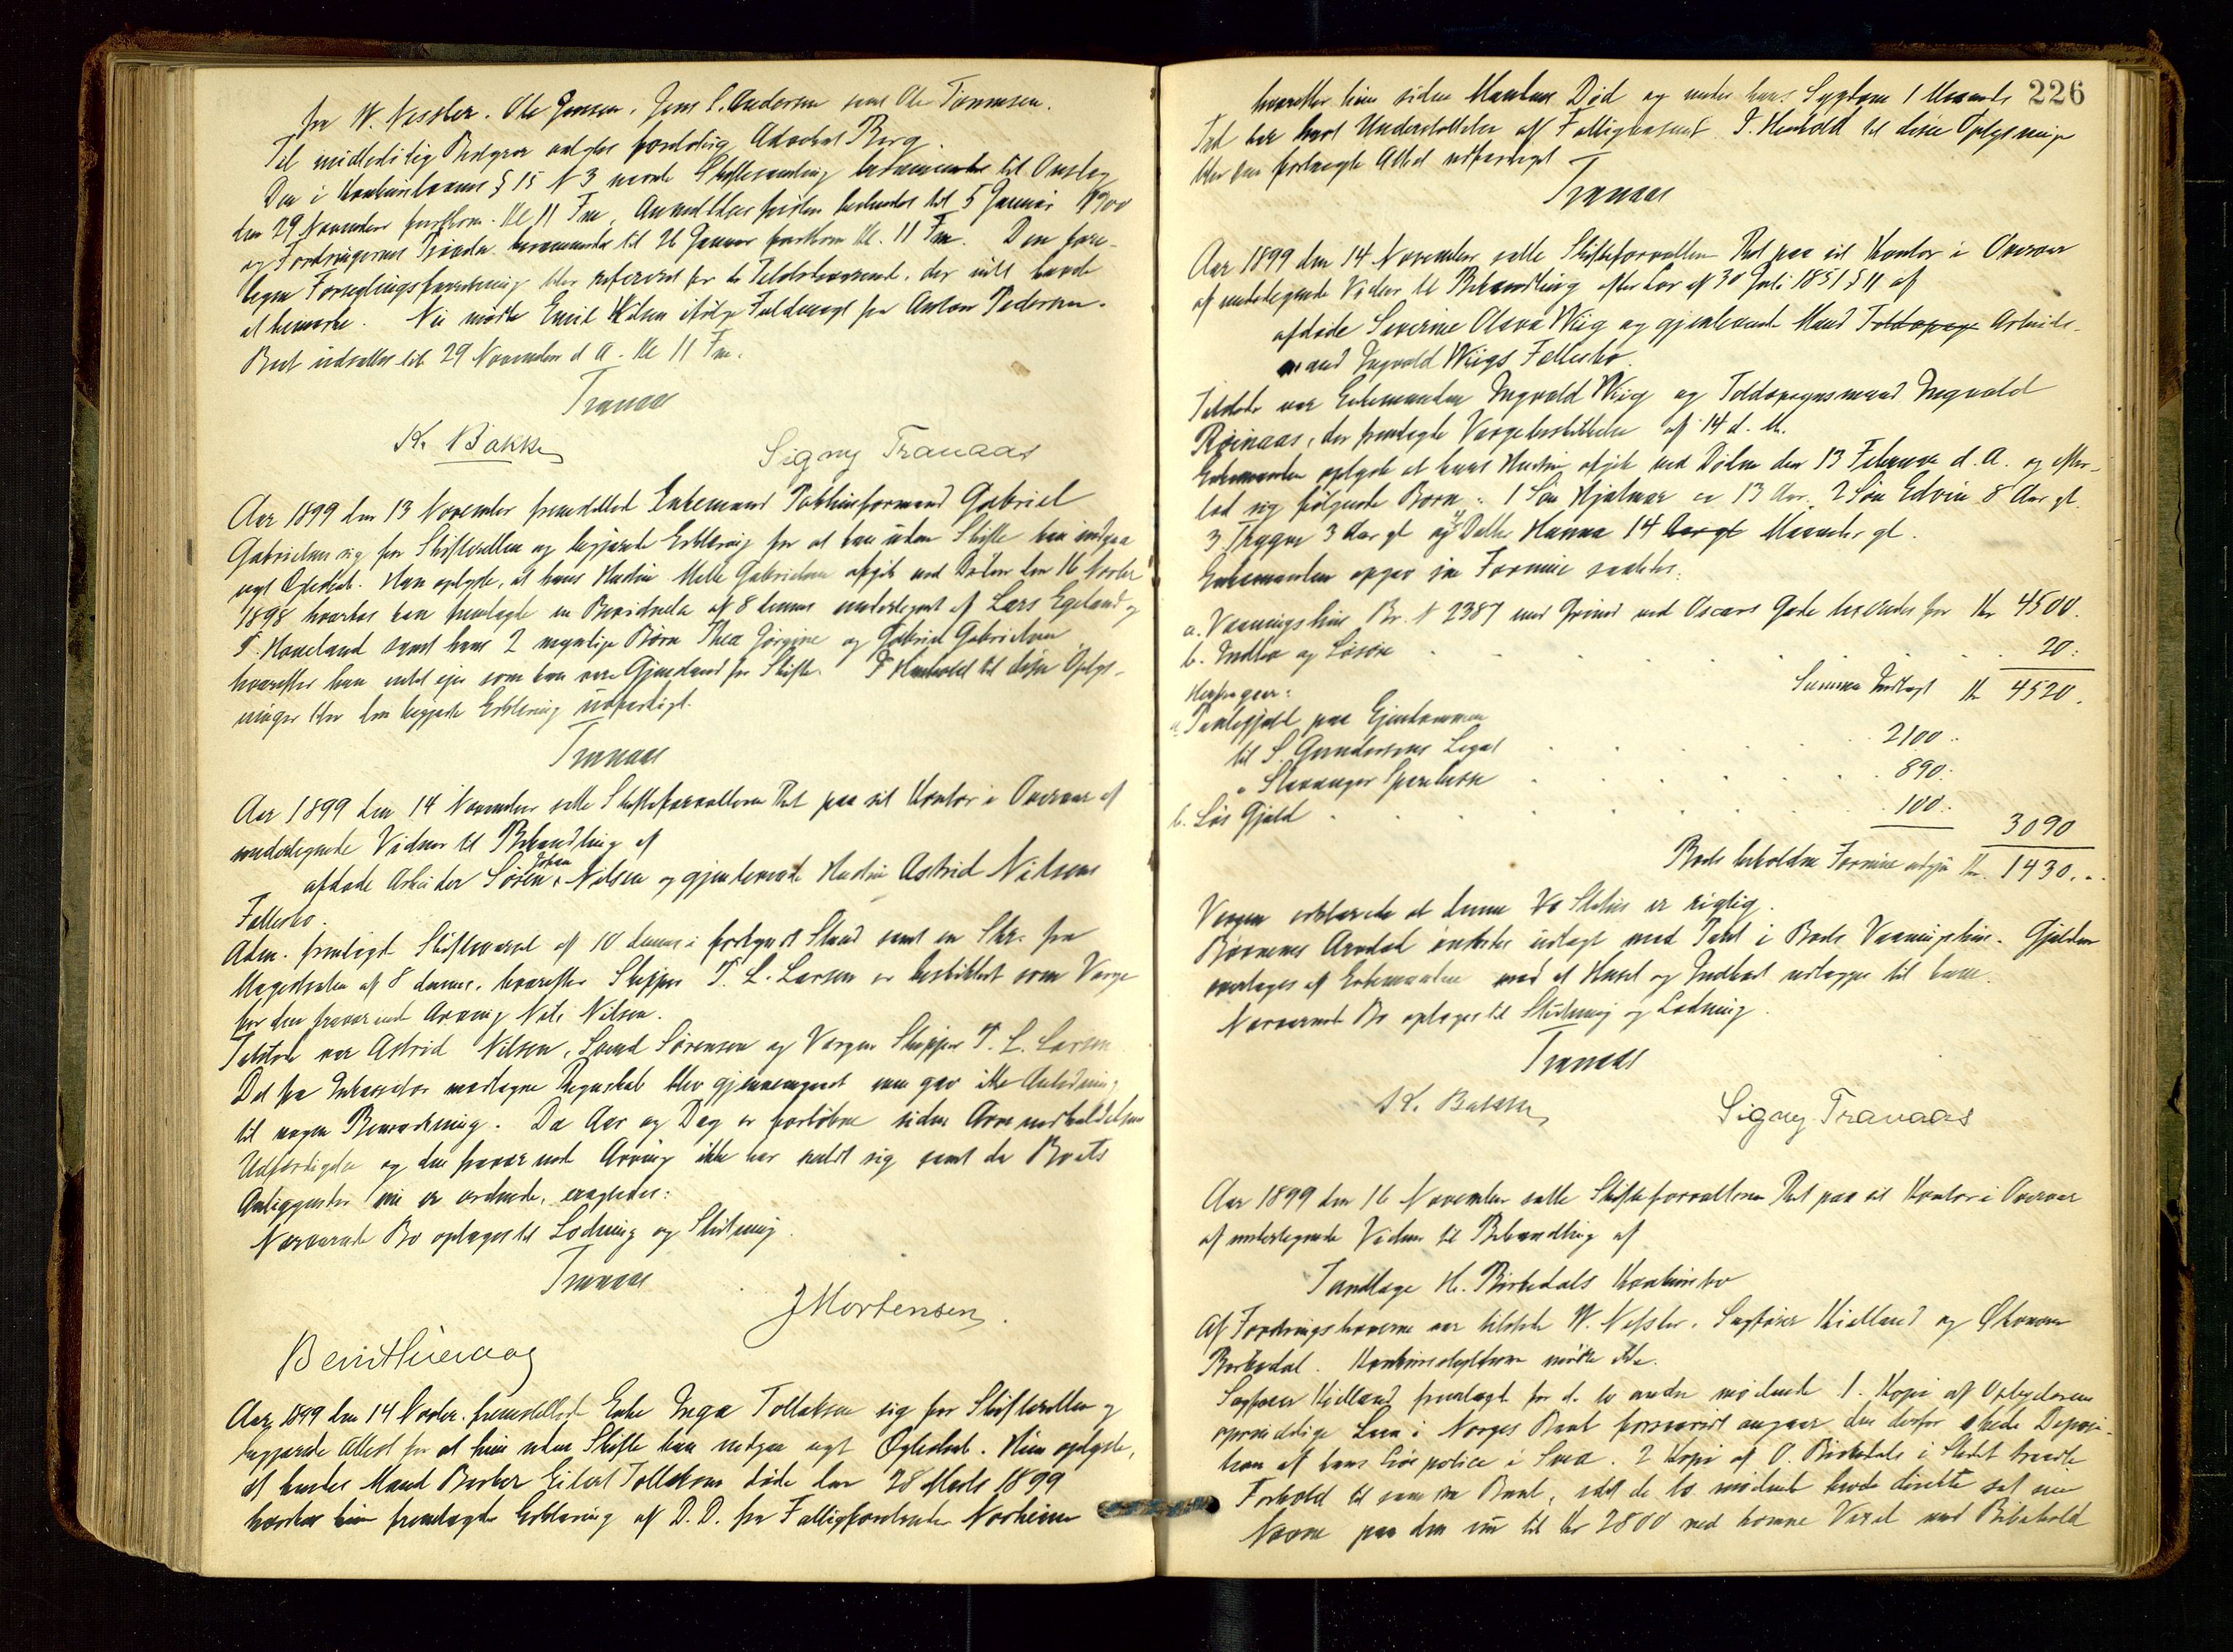 for W. Nessler, Ole Jensen, Jens S. Andersen samt Ole Tønnesen.
Til midlertidig Bestyrer valgtes foreløbig Advokat Berg.
Den i Konkurslovens § 15 N 3 nævnte Skiftesamling berammedes til Onsdag
den 29 November førstkom. Kl 11 Fm, Anmeldelsesfristen bestemtes til 5 Januar 1900
og Fordringernes Prøvelse berammedes til 26 Januar førstkom Kl. 11 Fm. Den fore-
tagne Forseglingsforretning blev refereret for de Tilstedeværende, der intet havde
at bemærke. Nu mødte Emil Nilsen ifølge Fuldmagt fra Anton Pedersen.
Boet udsattes til 29 November d A. Kl 11 Fm.
Tranaas
K. Bakke Signy Tranaas
Aar 1899 den 13 November fremstillede Enkemand Gabriel
Gabrielsen sig for Skifteretten og begjærede Erklæring for at han uden Skifte kan indgaa
nyt Ægteskab. Han oplyste, at hans Hustru Mette Gabrielsen afgik ved Døden den 16 Novbr
1898 hvorhos han fremlagde en Bevidnelse af 8 dennes undertegnet af Lars Egeland og
T. Haveland samt hans 2 myndige Børn Thea Jørgine og Gabriel Gabrielsen
hvorefter han intet ejer som kan være Gjenstand for Skifte. I Henhold til disse Oplys-
ninger blev den begjærte Erklæring udfærdiget.
Tranaas
Aar 1899 den 14 November satte Skifteforvalteren Ret paa sit Kontor i Overvær af
undertegnede Vidner til Behandling af
afdøde Arbeider Søren Johan Nilsen og gjenlevende Hustru Astrid Nilsens
Fællesbo.
Adm. fremlagde Skiftevarsel af 10 dennes i forkyndt Stand samt en Skr. fra
Magistraten af 8 dennes, hvorefter Skipper T. L. Larsen er beskikket som Værge
for den fraværende Arving Nils Nilsen.
Tilstede var Astrid Nilsen, Svend Sørensen og Værgen Skipper T. L. Larsen
Det fra Inkassator modtagne Regnskab blev gjennemgaaet men gav ikke Anledning
til nogen Bemærkning. Da Aar og Dag er forløbne siden
Udfærdigelse og den fraværende Arving ikke har meldt sig samt da Boets
Anliggender nu er ordnede, eragtedes:
Nærværende Bo optages til Lodning og Slutning.
Tranaas
J Mortensen.
Aar 1899 den 14 Novbr. fremstillede Enke Inga Tollaksen sig for Skifteretten og
begjærede Attest for at hun uden Skifte kan indgaa nyt Ægteskab. Hun oplyste,
at hendes Mand Barber Eilert Tollaksen døde den 28 Marts 1899
hvorhos hun fremlagde Erklæring af D. D. fra Fattigforstander Norheim
226
hvorefter hun siden Mandens Død og under hans Sygdom 1 Maaneds
Tid har havt Understøttelse af Fattigvæsenet. I Henhold til disse Oplysninger
blev den forlangte Attest udfærdiget
Tranaas
Aar 1899 den 14 November satte Skifteforvalteren Ret paa sit Kontor i Overvær
af undertegnede Vidner til Behandling efter Lov af 30 Juli 1851 § 11 af
afdøde Severine Olava Wiig og gjenlevende Mand Toldopsyn Arbeids-
mand Ingvald Wiigs Fællesbo.
Tilstede var Enkemanden Ingvald Wiig og Toldopsynsmand Ingvald
Røinaas, der fremlagde Værgebeskikkelse af 14 d. M.
Enkemanden oplyste at hans Hustru afgik ved Døden den 13 Februar d. A. og efter-
lod sig følgende Børn: 1 Søn Hjalmar ca 13 Aar, 2 Søn Edvin 8 Aar gl.
3 Trygve 3 Aar gl og 4 Datter Hanna 14 Aar gl Maaneder gl.
Enkemanden opgav sin Formue saaledes:
a. Vaaningshus Br. N 2387 med Grund ved Oscars Gade Kr 4500.
b. Indbo og Løsøre 20.
Summa Indtægt Kr 4520.
Herfra gaar:
a Pantegjæld paa Ejendommen
til S. Gundersens Legat 2100.
" Stavanger Sparekasse 890.
b. Løs Gjæld 100. 3090
Boets beholdne Formue udgjør Kr. 1430. "
Værgen erklærede at denne Status er rigtig.
Børnenes Arvelod ønskedes udlagt med Pant i Boets Vaaningshus. Gjælden
overtages af Enkemanden mod at Huset og Indboet udlægges til ham.
Nærværende Bo optages til Slutning og Lodning.
Tranaas
K. Bakke Signy Tranaas
Aar 1899 den 16 November satte Skifteforvalteren Ret paa sit Kontor i Overvær
af undertegnede Vidner til Behandling af
Tandlæge H. Birkedals Konkursbo
Af Fordringshaverne var tilstede W. Nessler, Sagfører Kielland og
Birkedal. mødte ikke.
Sagfører Kielland fremlagde for de to andre mødende 1. Kopi af
oprindelige Laan i Norges Bank forsaavidt angaar den derfor skede Deponi-
tion af hans Livspolice i Svea. 2 Kopi af O. Birkedals i Stedet traadte
Forhold til samme Bank, idet de to mødende havde direkte sat sine
Navne paa den nu til Kr 2800 ned komne Vexel med Bibehold